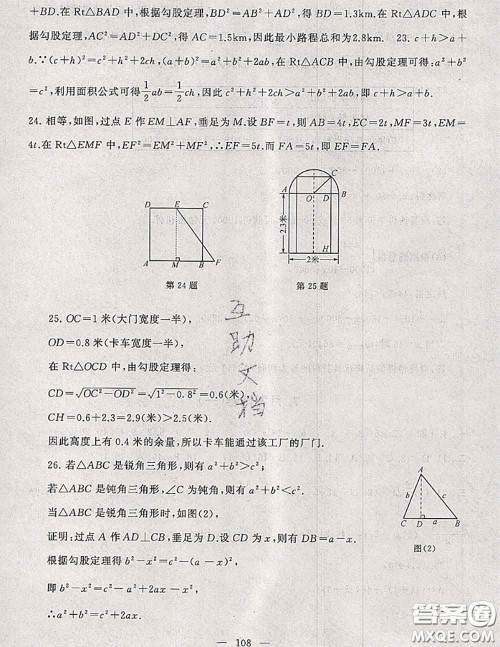 +BD.在 Rt△BAD 中,根据勾股定理,BD²=AB²+AD²,得 BD=1.3km.在 Rt△ADC 中,根
据勾股定理,AC²=AD²+DC²,得 AC=1.5km,因此最小路程总和为2.8km. 23. c+h>a+
b.∵(c+h)²=c²+h²+2ch,(a+b)²=a²+b²+2ab,在 Rt△ACB 中,由勾股定理可得:a²+b²
=c²,利用面积公式可得½ab=½ch,因此 c²+h²+2ch>a²+b²+2ab,即 c+h>a+b.
24. 相等,如图,过点 E 作 EM⊥AF,垂足为 M.设 BF=t,则 AB=4t,EC=2t,MF=3t,EM=
4t.在 Rt△EMF 中,EF²=EM²+MF²,∴EF=5t.而 FA=5t,即 EF=FA.
D E C
A M B F
第24题
C
A O D B
2.3米
H
2米
第25题
25. OC=1 米(大门宽度一半),
OD=0.8 米(卡车宽度一半),
在 Rt△OCD 中,由勾股定理得:
CD=√OC²−OD²=√1²−0.8²=0.6(米),
CH=0.6+2.3=2.9(米)>2.5(米).
因此高度上有 0.4 米的余量,所以卡车能通过该工厂的厂门.
26. 若△ABC 是锐角三角形,则有 a²+b²>c²;
若△ABC 是钝角三角形,∠C 为钝角,则有 a²+b²<c².
当△ABC 是锐角三角形时,如图(2),
证明:过点 A 作 AD⊥CB,垂足为 D.设 CD 为 x,则有 DB=a−x.
根据勾股定理得 b²−x²=c²−(a−x)²,
即 b²−x²=c²−a²+2ax−x²,
∴a²+b²=c²+2ax.
A
b c
C D a B
图(2)
互助文档
— 108 —
答案圈
MXQE.COM